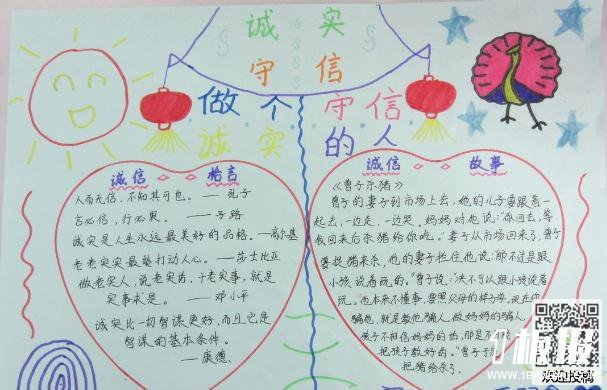 诚 实
守 信
做个 守信
诚实 的人
诚信 格言
人而无信，不知其可也。——孔子
言必信，行必果。——子路
诚实是人生永远最美好的品格。——高尔基
老老实实最能打动人心。——莎士比亚
做老实人，说老实话，干老实事，就是
实事求是。——邓小平
诚实比一切智谋更好，而且它是
智谋的基本条件。
——康德
诚信 故事
《曾子杀猪》
曾子的妻子到市场上去，她的儿子要跟着一
起去，一边走，一边哭。妈妈对他说："你回去，等
我回来后杀猪给你吃。"妻子从市场回来了，曾子
要捉猪来杀，他的妻子拦住他说："那不过是跟
小孩说着玩的。"曾子说："决不可以跟小孩说着
玩。他本来不懂事，要照父母的样子学，现在你
骗他，就是教他骗人，做妈妈的骗人，
孩子不相信妈妈的话，那是不
把孩子教好的。"曾子于
把猪给杀了。
板报